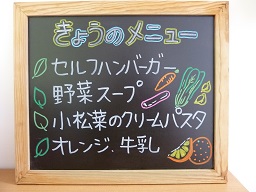 きょうのメニュー
セルフハンバーガー
野菜スープ
小松菜のクリームパスタ
オレンジ、牛乳